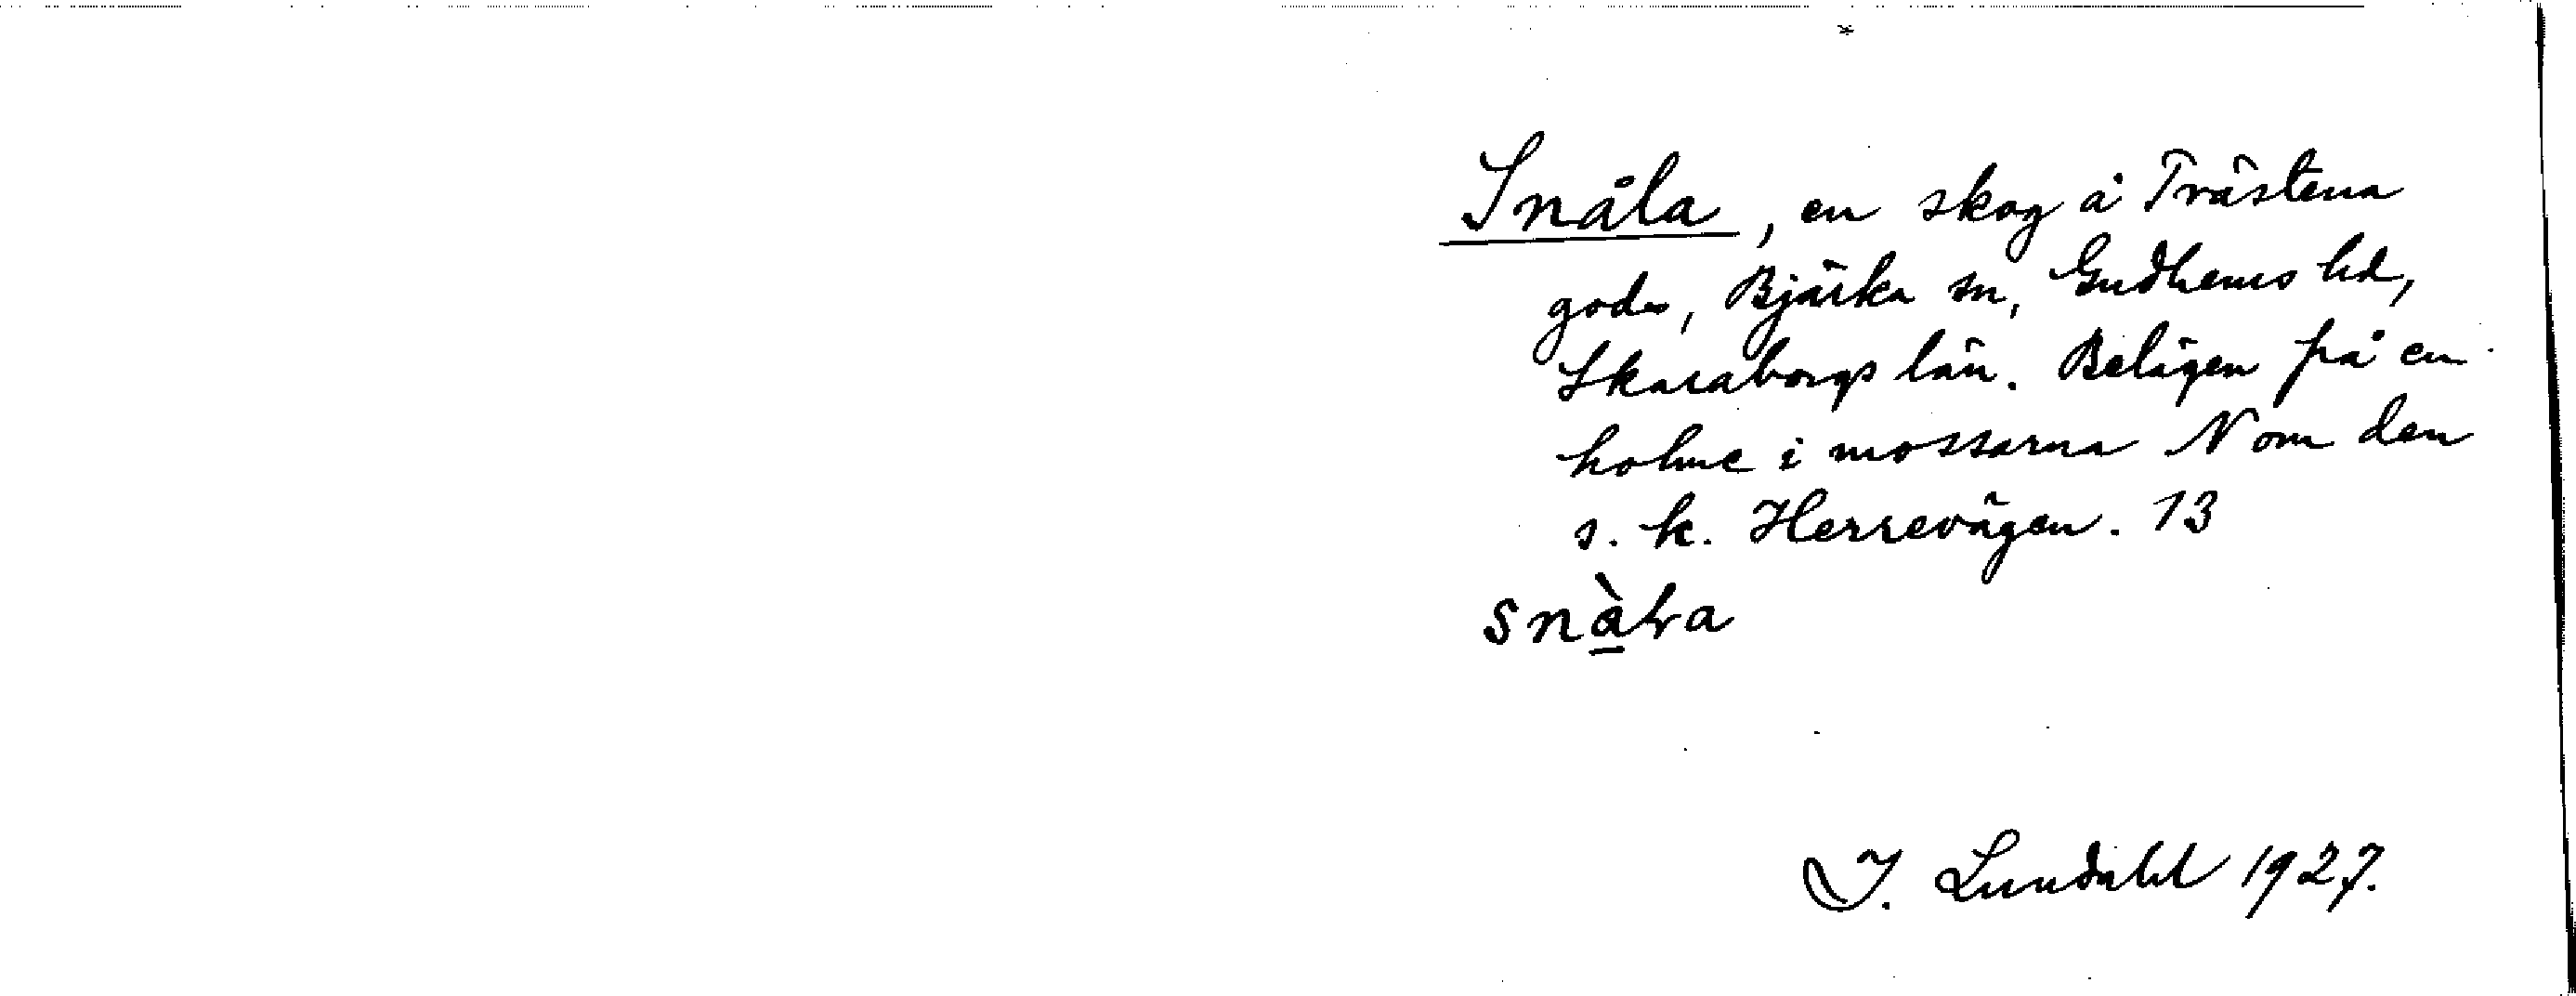 Snåla, en skog å Trästena
gods, Bjärka sn, Gudhems hd,
Skaraborgs län. Belägen på en
holme i mossarna N om den
s. k. Herrevägen. 13
I. Lundahl 1927.